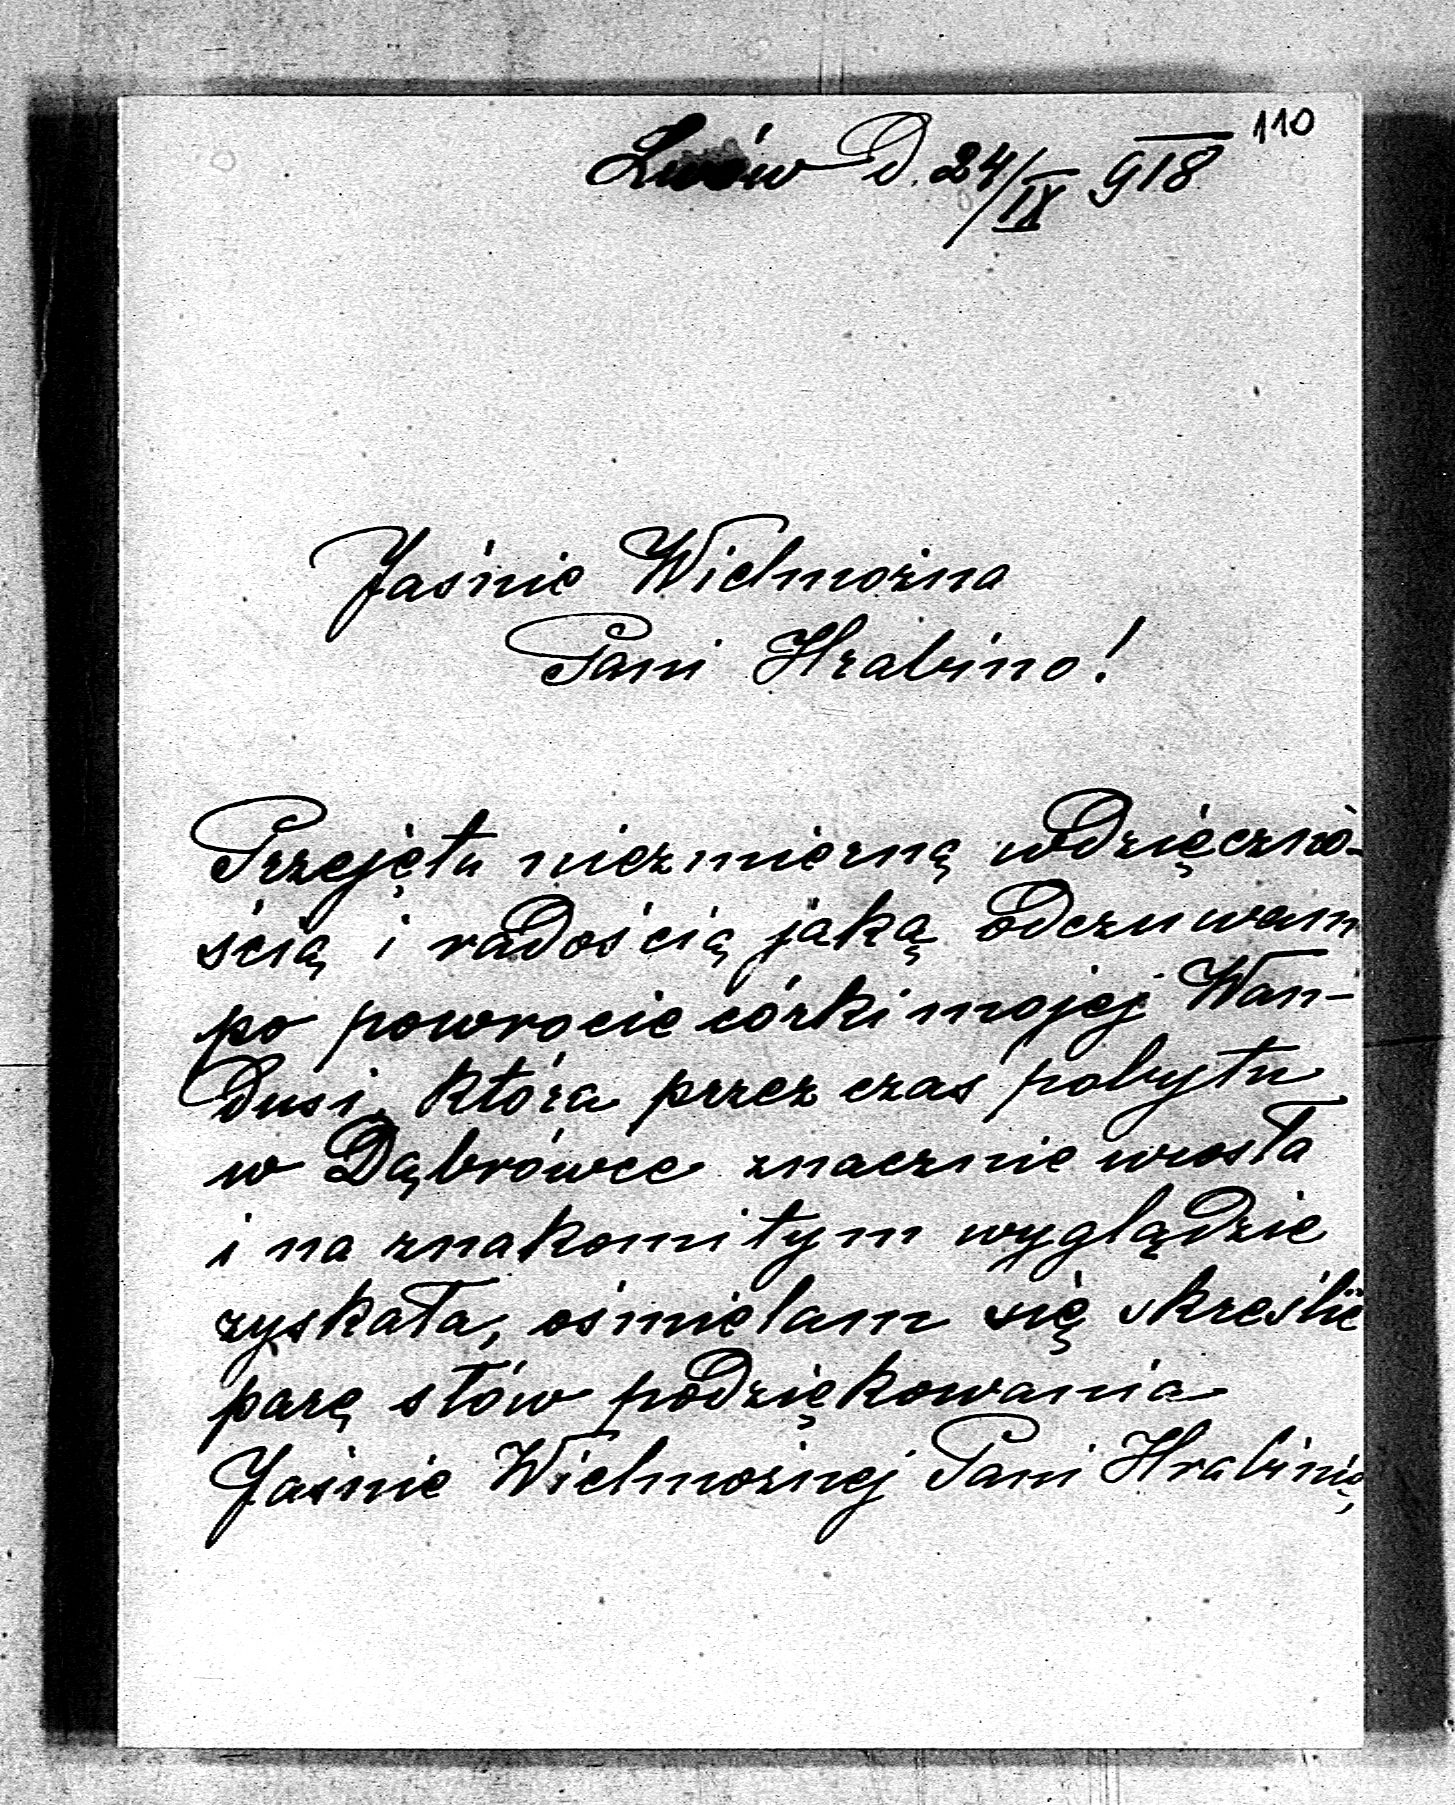 110
Lwów D. 24/IX 918
Jaśnie Wielmożna
Pani Hrabino!
Przejęta niezmierną wdzięczno-
ścią i radością jaką odczuwam
po powrocie córki mojej Wan-
dusi, która przez czas pobytu
w Dąbrówce znacznie wrosła
i na znakomitym wyglądzie
zyskała, ośmielam się skreślić
parę słów podziękowania
Jaśnie Wielmożnej Pani Hrabinie,